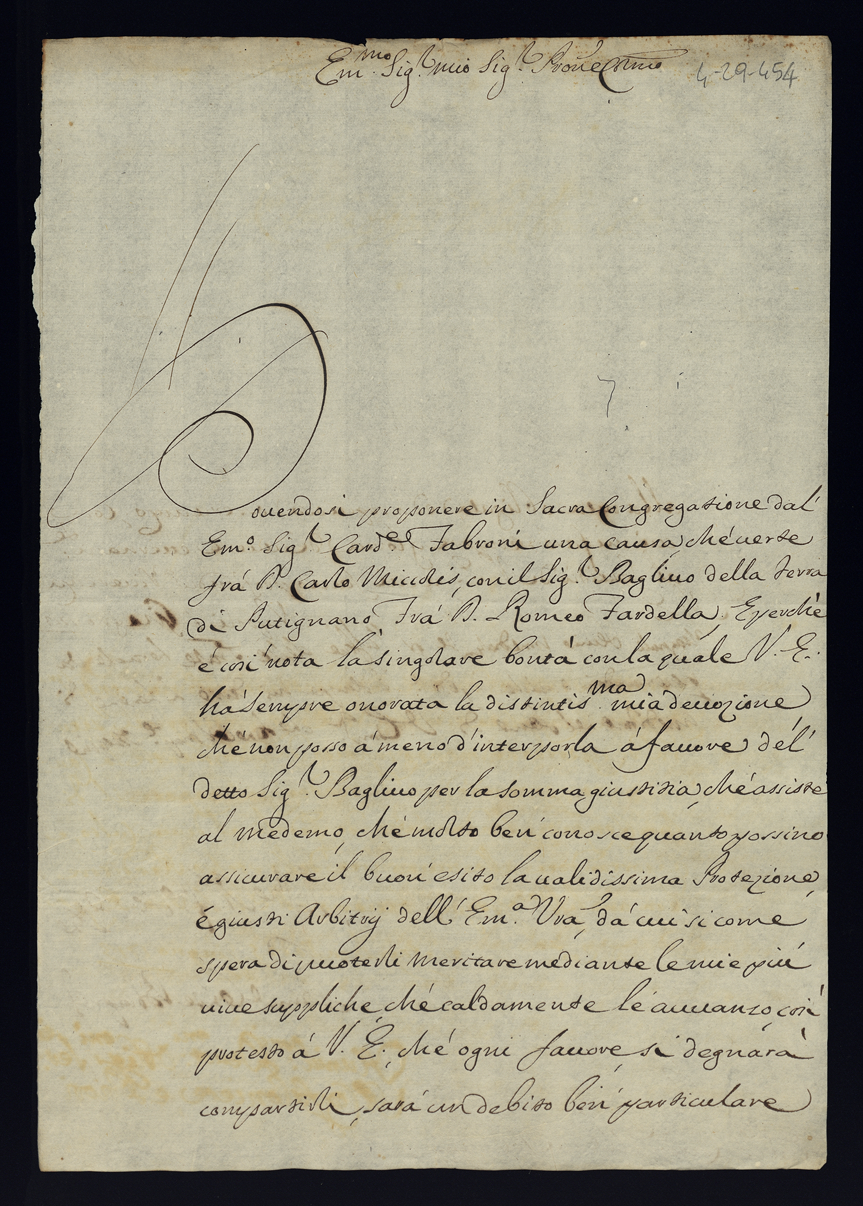 Em.mo Sig.r mio Sig.r Prone Colmo
4-29-454
Dovendosi proponere in Sacra Congregatione dal'
Em.o Sig.r Card.le Fabroni una causa, ché verte
frá D. Carlo Miccolis, con il Sig.r Baglivo della Terra
di Putignano Frá D. Romeo Fardella, E perché
é cosi' nota la singolare bontá con la quale V. E.
há sempre onorata la distintis.ma mia devozione
ché non posso á meno d'interporla á favore dél'
detto Sig.r Baglivo per la somma giustitia, ché assiste
al medemo, ché molto ben' conosce quanto possino
assicurare il buon' esito la validissima Protezione,
é giusti Arbitrij dell' Em.a Vra, dá cui si come
spera di puoterli meritare mediante le mie piú
vive suppliche, ché caldamente lé avvanzo, cosi'
protesto á V. E., ché ogni favore, si degnará
compartirli, sará un debito ben' particulare